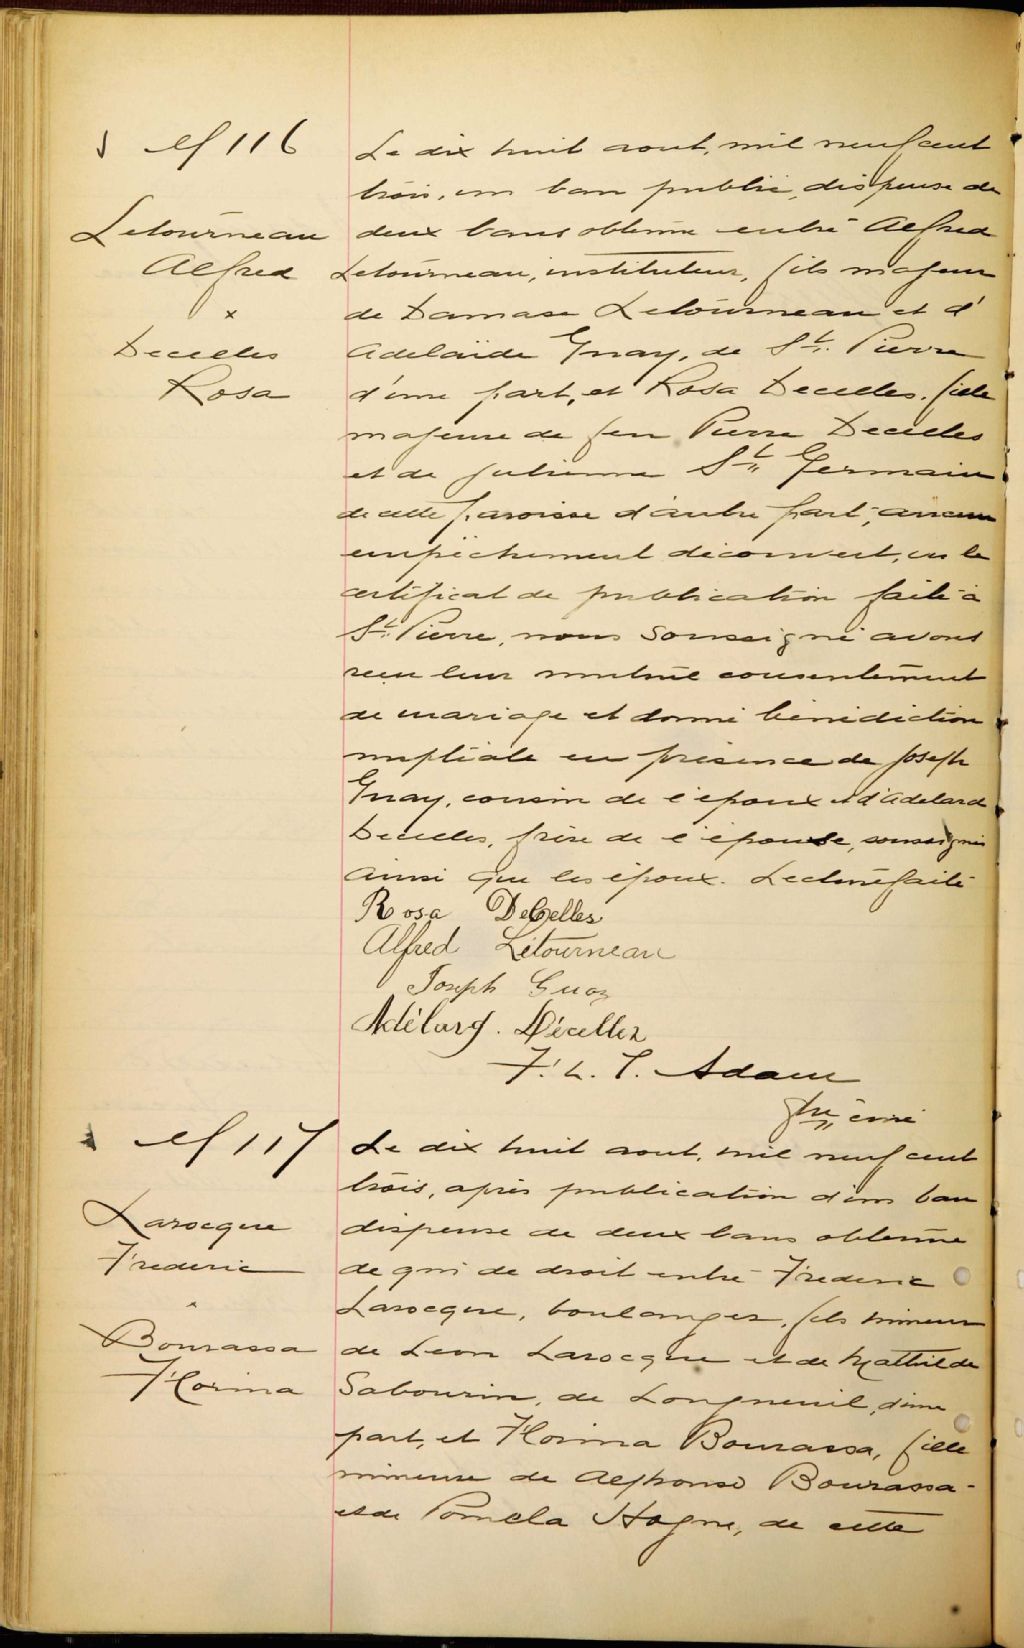 M 116
Letourneau
Alfred
x
Decelles
Rosa
Le dix huit aout, mil neuf cent
trois, un ban publié, dispense de
deux bans obtenue entre Alfred
Letourneau, instituteur, fils majeur
de Damase Letourneau et d'
Adelaïde Guay, de St. Pierre
d'une part, et Rosa Decelles, fille
majeure de feu Pierre Decelles
et de Julienne St Germain
de cette paroisse d'autre part; aucun
empêchement découvert, vu le
certificat de publication faite à
St. Pierre, nous soussigné avons
reçu leur mutuel consentement
de mariage et donné bénédiction
nuptiale en présence de Joseph
Guay, cousin de l'époux et d'Adelard
Decelles, frère de l'épouse, soussignés
ainsi que les époux. Lecture faite
Rosa DeCelles
Alfred Létourneau
Joseph Guay
Adélard. Décelles
F. L. T. Adam
ptre curé
M 117
Larocque
Frederic
x
Bourassa
Florina
Le dix huit aout, mil neuf cent
trois, après publication d'un ban
dispense de deux bans obtenue
de qui de droit entre Frederic
Larocque, boulanger, fils mineur
de Leon Larocque et de Mathilde
Sabourin, de Longueuil, d'une
part, et Florina Bourassa, fille
mineure de Alphonse Bourassa
et de Pomela Hogue, de cette